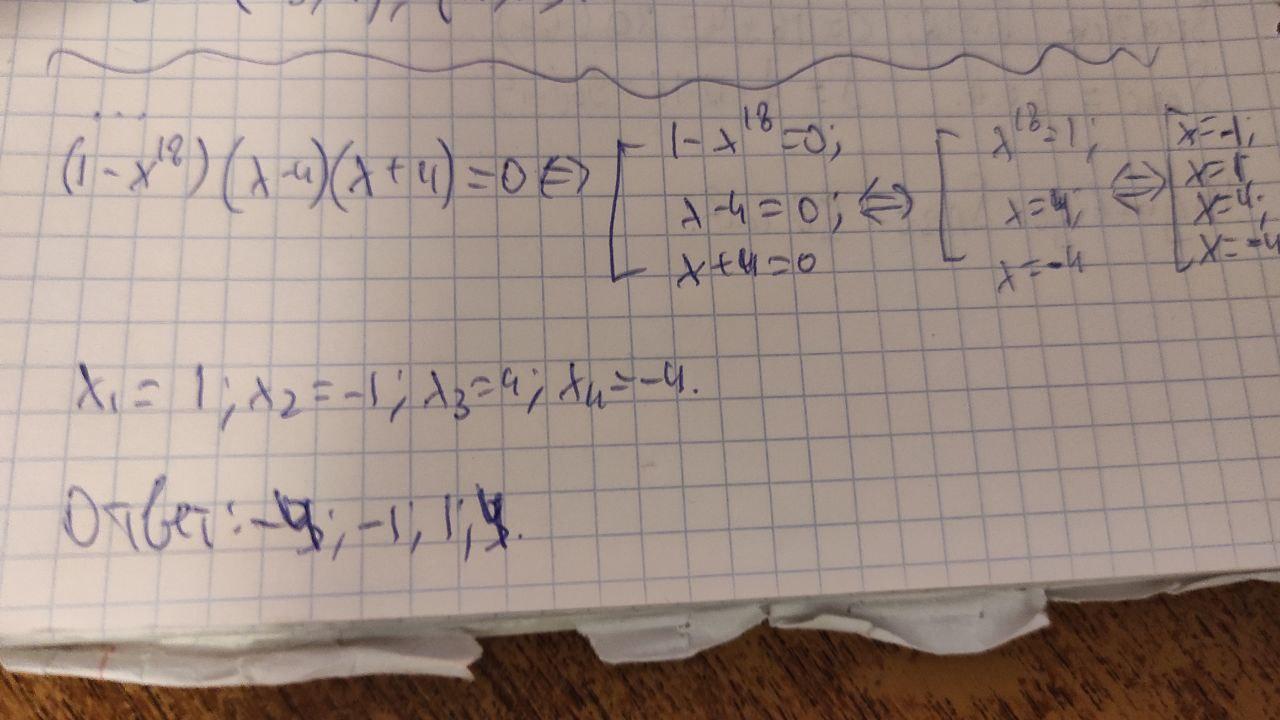 ...
(1-x¹⁸)(x-4)(x+4)=0 ⇔ [ 1-x¹⁸=0; x-4=0; x+4=0 ⇔ [ x¹⁸=1; x=4; x=-4 ⇔ [ x=-1; x=1; x=4; x=-4
x₁=1; x₂=-1; x₃=4; x₄=-4.
Ответ: -4; -1; 1; 4.